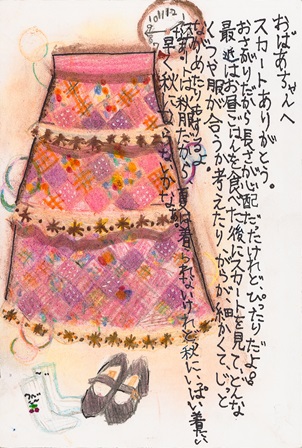 おばあちゃんへ
スカートありがとう。
おさがりだから長さが心配だったけれど、ぴったりだよ。
最近はお昼ごはんを食べた後にスカートを見て、どんな
くつや服が合うか考えたり、がらが細かくて、じっと
ながめたり
スカートは秋服だから、夏は着られないけれど、秋にいっぱい着たい
早く秋にならないかな。